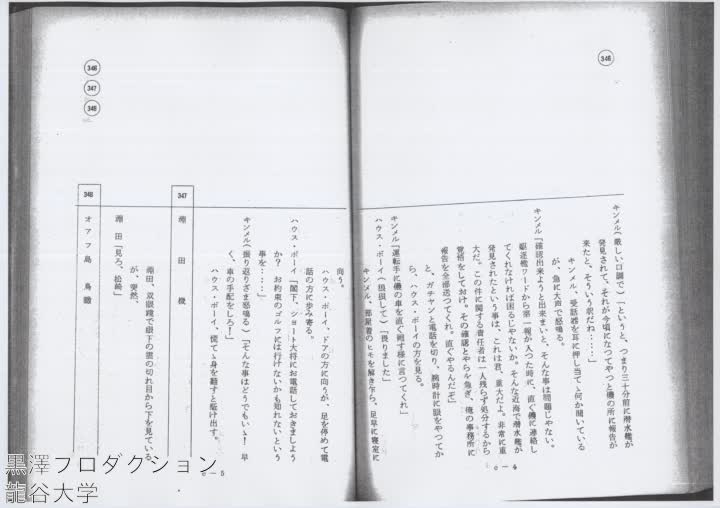 346
キンメル（厳しい口調で）「というと、つまり三十分前に潜水艦が
発見されて、それが今頃になつてやつと僕の所に報告が
来たと、そういう訳だね……」
キンメル、受話器を耳に押し当てゝ何か聞いている
が、急に大声で怒鳴る。
キンメル「確認出来ようと出来まいと、そんな事は問題じゃない。
駆逐艦ワードから第一報が入つた時に、直ぐ僕に連絡し
てくれなければ困るじゃないか。そんな近海で潜水艦が
発見されたという事は、これは君、重大だよ。非常に重
大だ。この件に関する責任者は一人残らず処分するから
覚悟をしておけ。その確認とやらを急ぎ、俺の事務所に
報告を全部送つてくれ。直ぐやるんだぞ」
と、ガチャンと電話を切り、腕時計に眼をやつてか
ら、ハウス・ボーイの方を見る。
キンメル「運転手に僕の車を直ぐ廻す様に言つてくれ」
ハウス・ボーイ（狼狽して）「畏りました」
キンメル、部屋着のヒモを解き乍ら、足早に寝室に
c－4
346
347
348
向う。
ハウス・ボーイ、ドアの方に向うが、足を停めて電
話の方に歩み寄る。
ハウス・ボーイ「閣下、ショート大将にお電話しておきましよう
か？　お約束のゴルフには行けないかも知れないという
事を……」
キンメル（振り返りざま怒鳴る）「そんな事はどうでもいゝ！　早
く、車の手配をしろ！」
ハウス・ボーイ、慌てゝ身を翻すと駆け出す。
347　淵　田　機
淵田、双眼鏡で眼下の雲の切れ目から下を見ている
が、突然、
淵　田「見ろ、松崎」
348　オアフ島　鳥瞰
c－5
黒澤プロダクション
龍谷大学